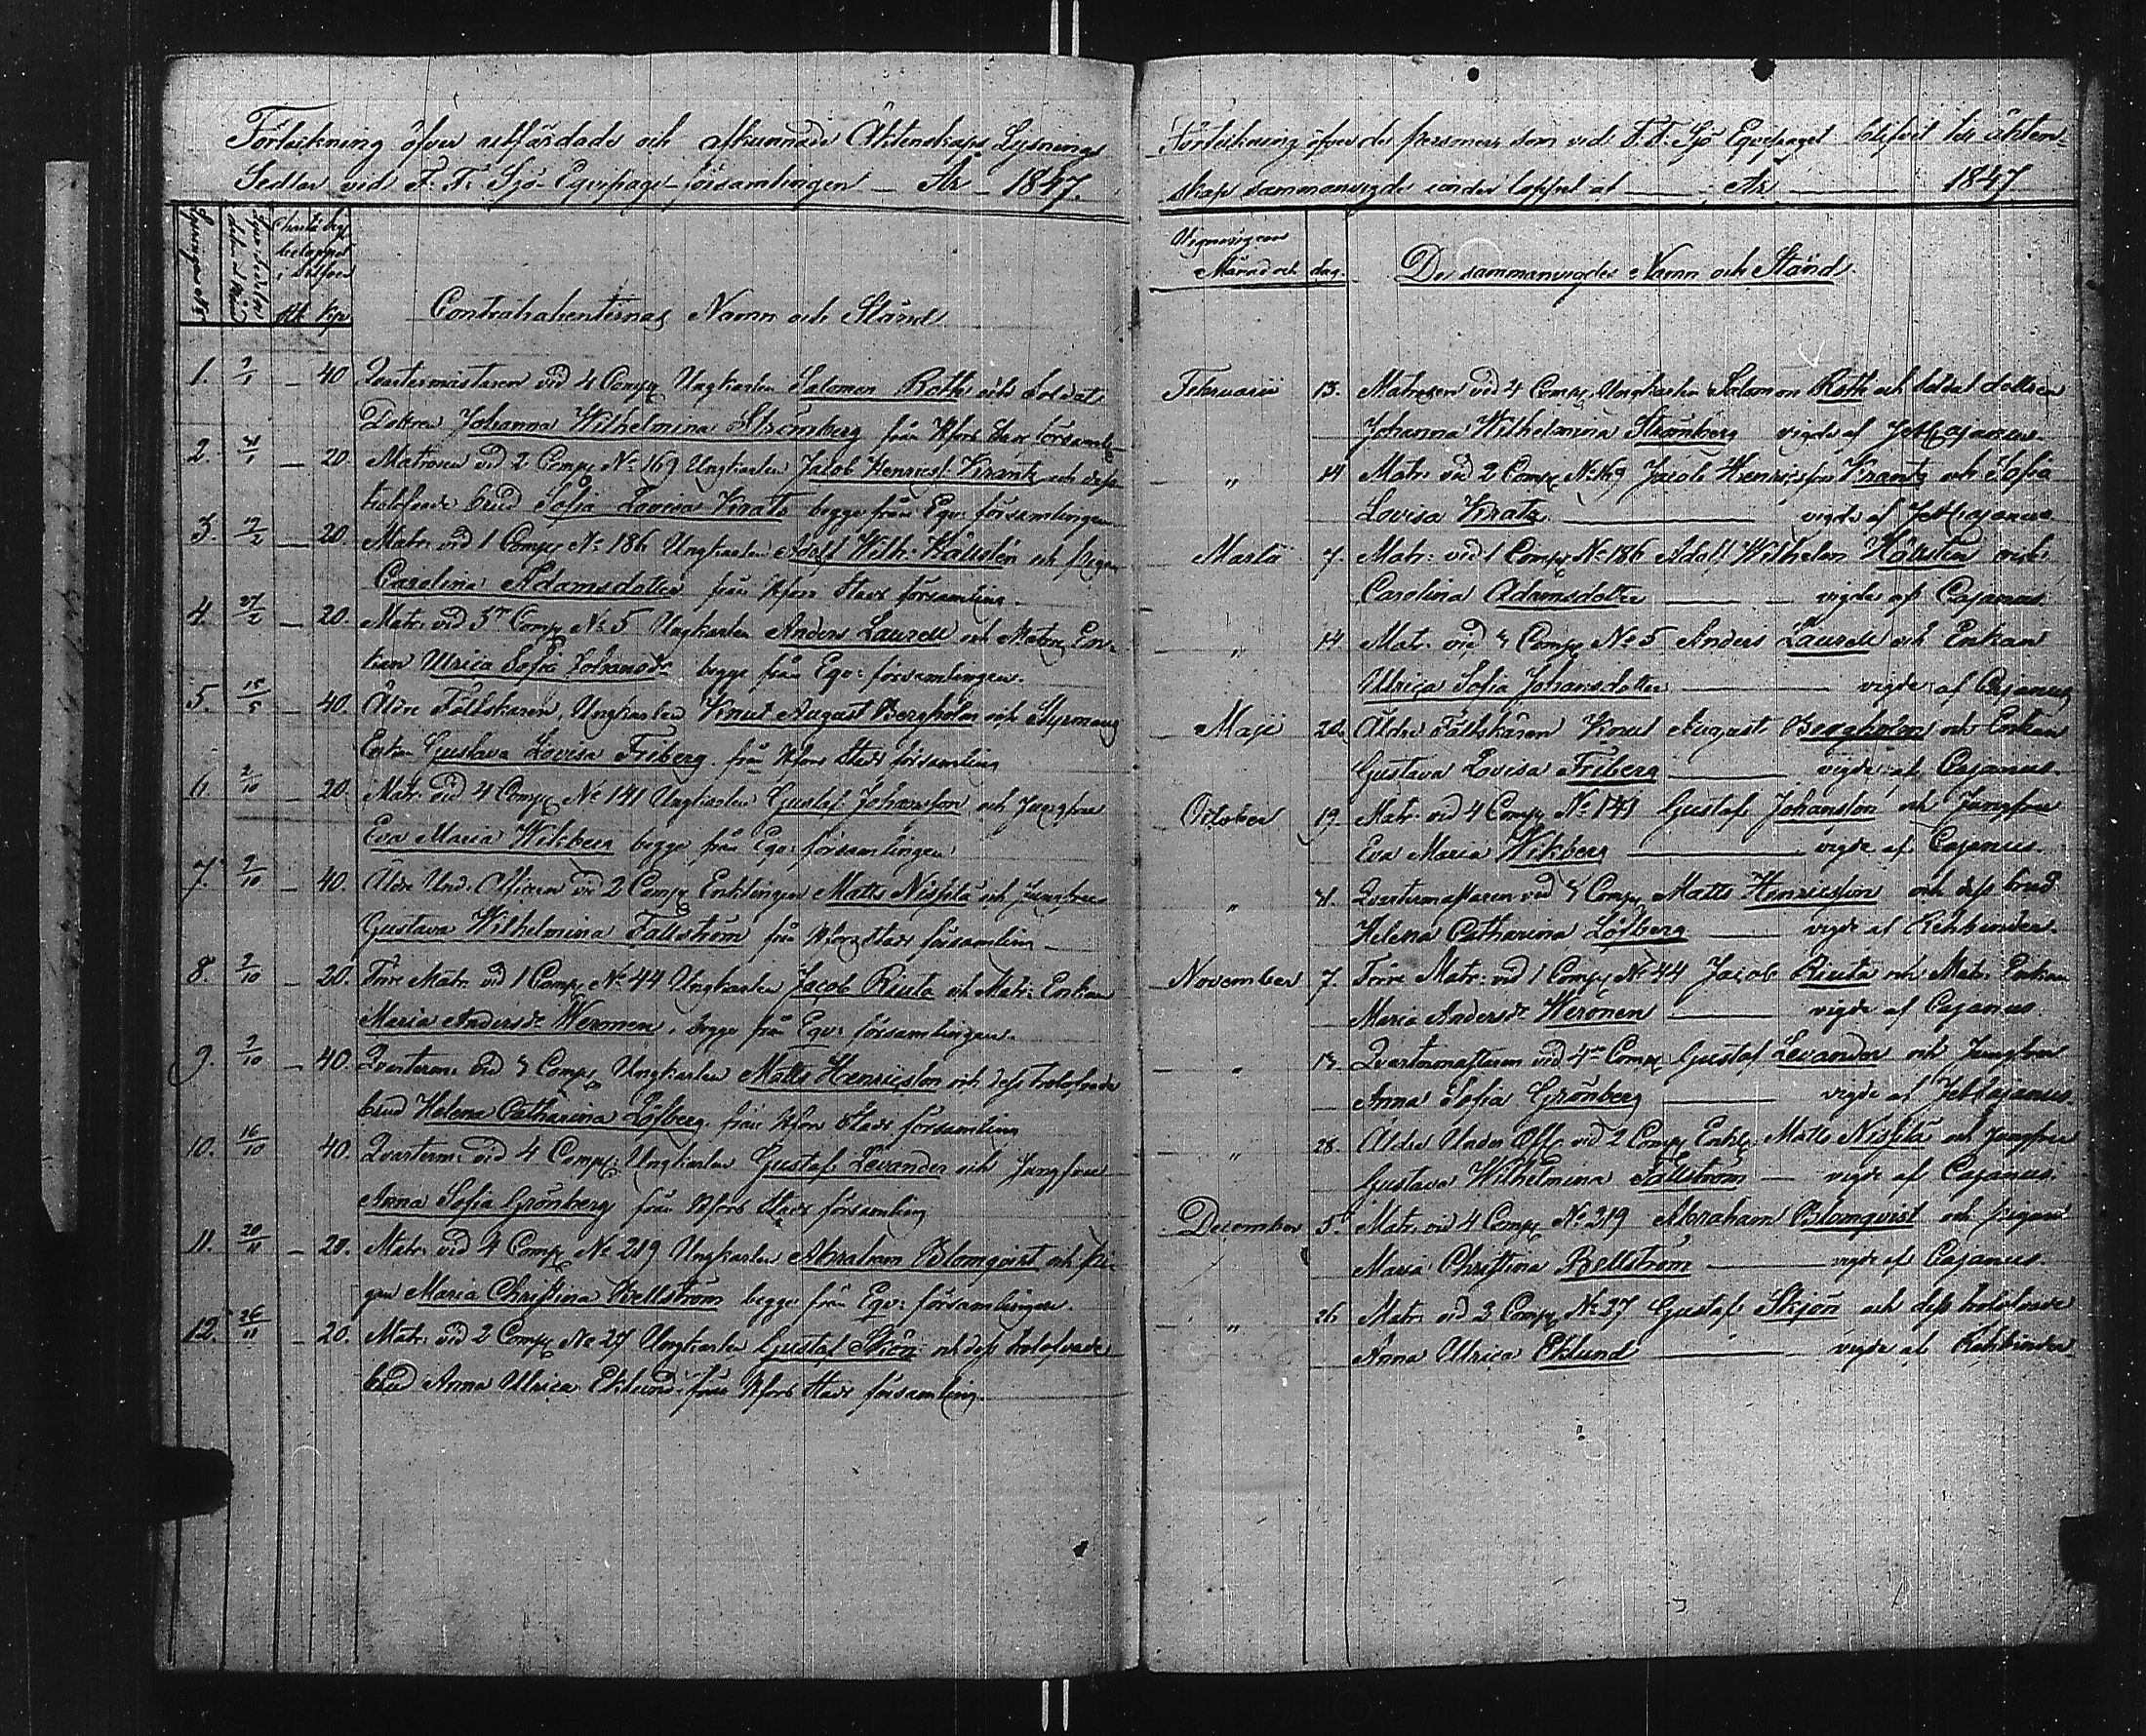 Förteckning öfver utfärdade och afkunnade Äktenskaps Lysnings
Sedlar vid F. F. Sjö-Equipage-församlingen – År – 1847.
Contrahenternas Namn och Stånd
1. 40 Qvartermästaren vid 4 Comp. Ungkarlen Salomon Roth och Soldats
Dottren Johanna Wilhelmina Strömberg från Hfors Stads församl.
2. 20 Matrosen vid 2 Comp. No 169 Ungkarlen Jacob Henricss. Krantz och dess
trolofvade brud Sofia Lovisa Kratz begge från Eqv: församlingen
3. 20. Matr. vid 1 Comp. No 186 Ungkarlen Adolf Wilh. Hällstén och pigan
Carolina Adamsdotter från Hfors Stads församling.
4. 27/2 20. Matr. vid 3 Comp. No 5 Ungkarlen Anders Laurell och Matros En-
kan Ulrica Sofia Johansdr begge från Eqv: församlingen.
5. 15/5 40. Äldre Fältskären, Ungkarlen Knut August Bergholm och Styrmans
Enkan Gustava Lovisa Friberg från Hfors Stads församling
6. 2/10 20. Matr. vid 4 Comp. No 141 Ungkarlen Gustaf Johansson och Jungfrun
Eva Maria Wikberg begge från Eqv: församlingen
7. 9/10 40. Äldre Und. Officeren vid 2 Comp. Enklingen Matts Niskila och Jungfrun
Gustava Wilhelmina Fallström från Hfors Stads församling
8. 9/10 20. Förre Matr. vid 1 Comp. No 44 Ungkarlen Jacob Riuta och Matr. Enkan
Maria Andersdr Weronen, begge från Eqv: församlingen.
9. 9/10 40. Qvarterm. vid 3 Comp. Ungkarlen Matts Henricsson och dess trolofvade
brud Helena Catharina Löfberg från Hfors Stads församling
10. 16/10 40. Qvarterm. vid 4 Comp. Ungkarlen Gustaf Levander och Jungfrun
Anna Sofia Grönberg från Hfors Stads församling
11. 20/11 20. Matr. vid 4 Comp. No 219 Ungkarlen Abraham Blomqvist och pi-
gan Maria Christina Bellström begge från Eqv: församlingen.
12. 26/11 20. Matr. vid 2 Comp. No 27 Ungkarlen Gustaf Skjön och dess trolofvade
brud Anna Ulrica Eklund från Hfors Stads församling.
Förteckning öfver de personer som vid F. F. Sjö Equipaget blifvit till äkten-
skap sammanvigde under loppet af År 1847
Månad och dag. De sammanvigdes Namn och Stånd.
Februarii 13. Matrosen vid 4 Comp. Ungkarlen Salomon Roth och Soldats dottren
Johanna Wilhelmina Strömberg vigde af Cajanus.
" 14 Matr. vid 2 Comp. No 169 Jacob Henricsson Krantz och Sofia
Lovisa Kratz vigde af Cajanus
Martii 7. Matr. vid 1 Comp. No 186 Adolf Wilhelm Hällstén och
Carolina Adamsdotter vigde af Cajanus.
" 14 Matr. vid 3 Comp. No 5 Anders Laurell och Enkan
Ulrica Sofia Johansdotter vigde af Cajanus
Maji 20. Äldre Fältskären Knut August Bergholm och Enkan
Gustava Lovisa Friberg vigde af Cajanus.
October 19. Matr. vid 4 Comp. No 141 Gustaf Johansson och Jungfrun
Eva Maria Wikberg vigde af Cajanus.
" Qvartermästaren vid 3 Comp. Matts Henricsson och dess brud
Helena Catharina Löfberg vigde af Rehbinder.
November 7. Förre Matr. vid 1 Comp. No 44 Jacob Riuta och Matr. Enkan
Maria Andersdr Weronen vigde af Cajanus.
" Qvartermästaren vid 4 Comp. Gustaf Levander och Jungfrun
Anna Sofia Grönberg vigde af Cajanus.
" 28. Äldre Under Off. vid 2 Comp. Enkl. Matts Niskila och Jungfrun
Gustava Wilhelmina Fallström vigde af Cajanus.
December 5. Matr. vid 4 Comp. No 219 Abraham Blomqvist och pigan
Maria Christina Bellström vigde af Cajanus.
" 26 Matr. vid 2 Comp. No 27 Gustaf Skjön och dess trolofvade
Anna Ulrica Eklund vigde af Rehbinder